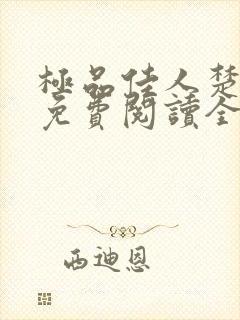 極品佳人楚
免費閱讀全
西迪恩